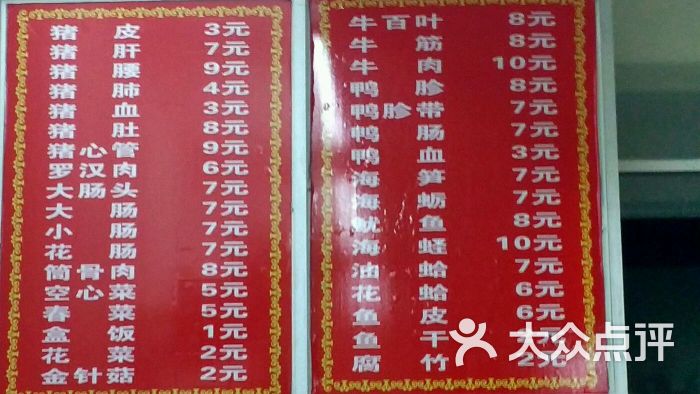 猪皮 3元
猪肝 7元
猪腰 9元
猪肺 4元
猪血 3元
猪肚 8元
猪心管 9元
罗汉肉 6元
大肠头 7元
大肠 7元
小肠 7元
花肠 7元
筒骨肉 8元
空心菜 5元
春菜 5元
盒饭 1元
花菜 2元
金针菇 2元
牛百叶 8元
牛筋 8元
牛肉 10元
鸭胗 8元
鸭胗带 7元
鸭肠 7元
鸭血 3元
海笋 7元
海蛎 7元
鱿鱼 8元
海蛏 10元
油蛤 7元
花蛤 6元
鱼皮 6元
鱼干 元
腐竹 2元
大众点评